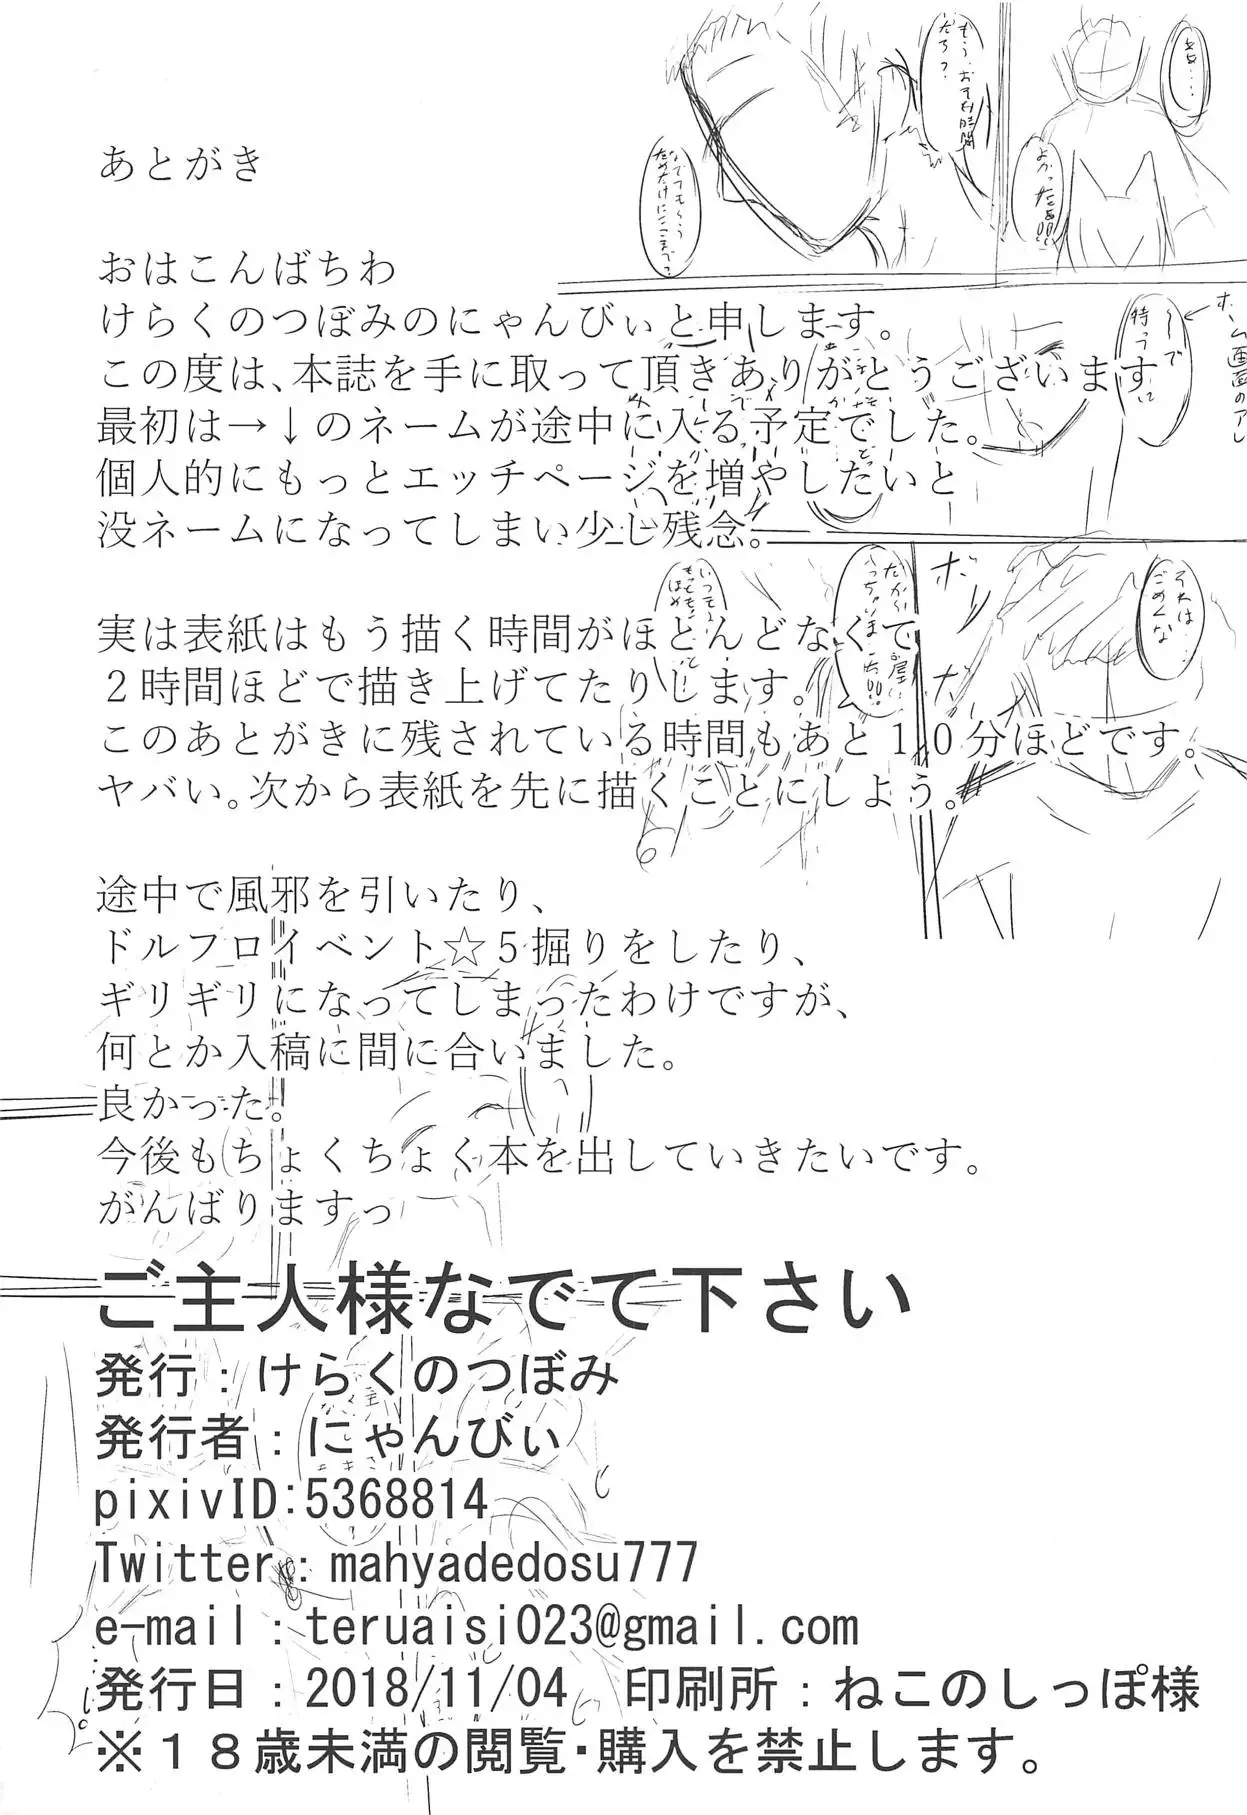 あとがき
おはこんばちわ
けらくのつぼみのにゃんびぃと申します。
この度は、本誌を手に取って頂きありがとうございます
最初は→↓のネームが途中に入る予定でした。
個人的にもっとエッチページを増やしたいと
没ネームになってしまい少し残念。
実は表紙はもう描く時間がほとんどなくて
２時間ほどで描き上げてたりします。
このあとがきに残されている時間もあと１０分ほどです。
ヤバい。次から表紙を先に描くことにしよう。
途中で風邪を引いたり、
ドルフロイベント☆５掘りをしたり、
ギリギリになってしまったわけですが、
何とか入稿に間に合いました。
良かった。
今後もちょくちょく本を出していきたいです。
がんばりますっ
ご主人様なでて下さい
発行：けらくのつぼみ
発行者：にゃんびぃ
pixivID:5368814
Twitter：mahyadedosu777
e-mail：teruaisi023@gmail.com
発行日：2018/11/04　印刷所：ねこのしっぽ様
※１８歳未満の閲覧・購入を禁止します。
もう、おそい時間
だろ？
なでてもらう
ためだけにここまで？
よかったぁ!!
ホーム画面のアレ
それは…
ごめんな